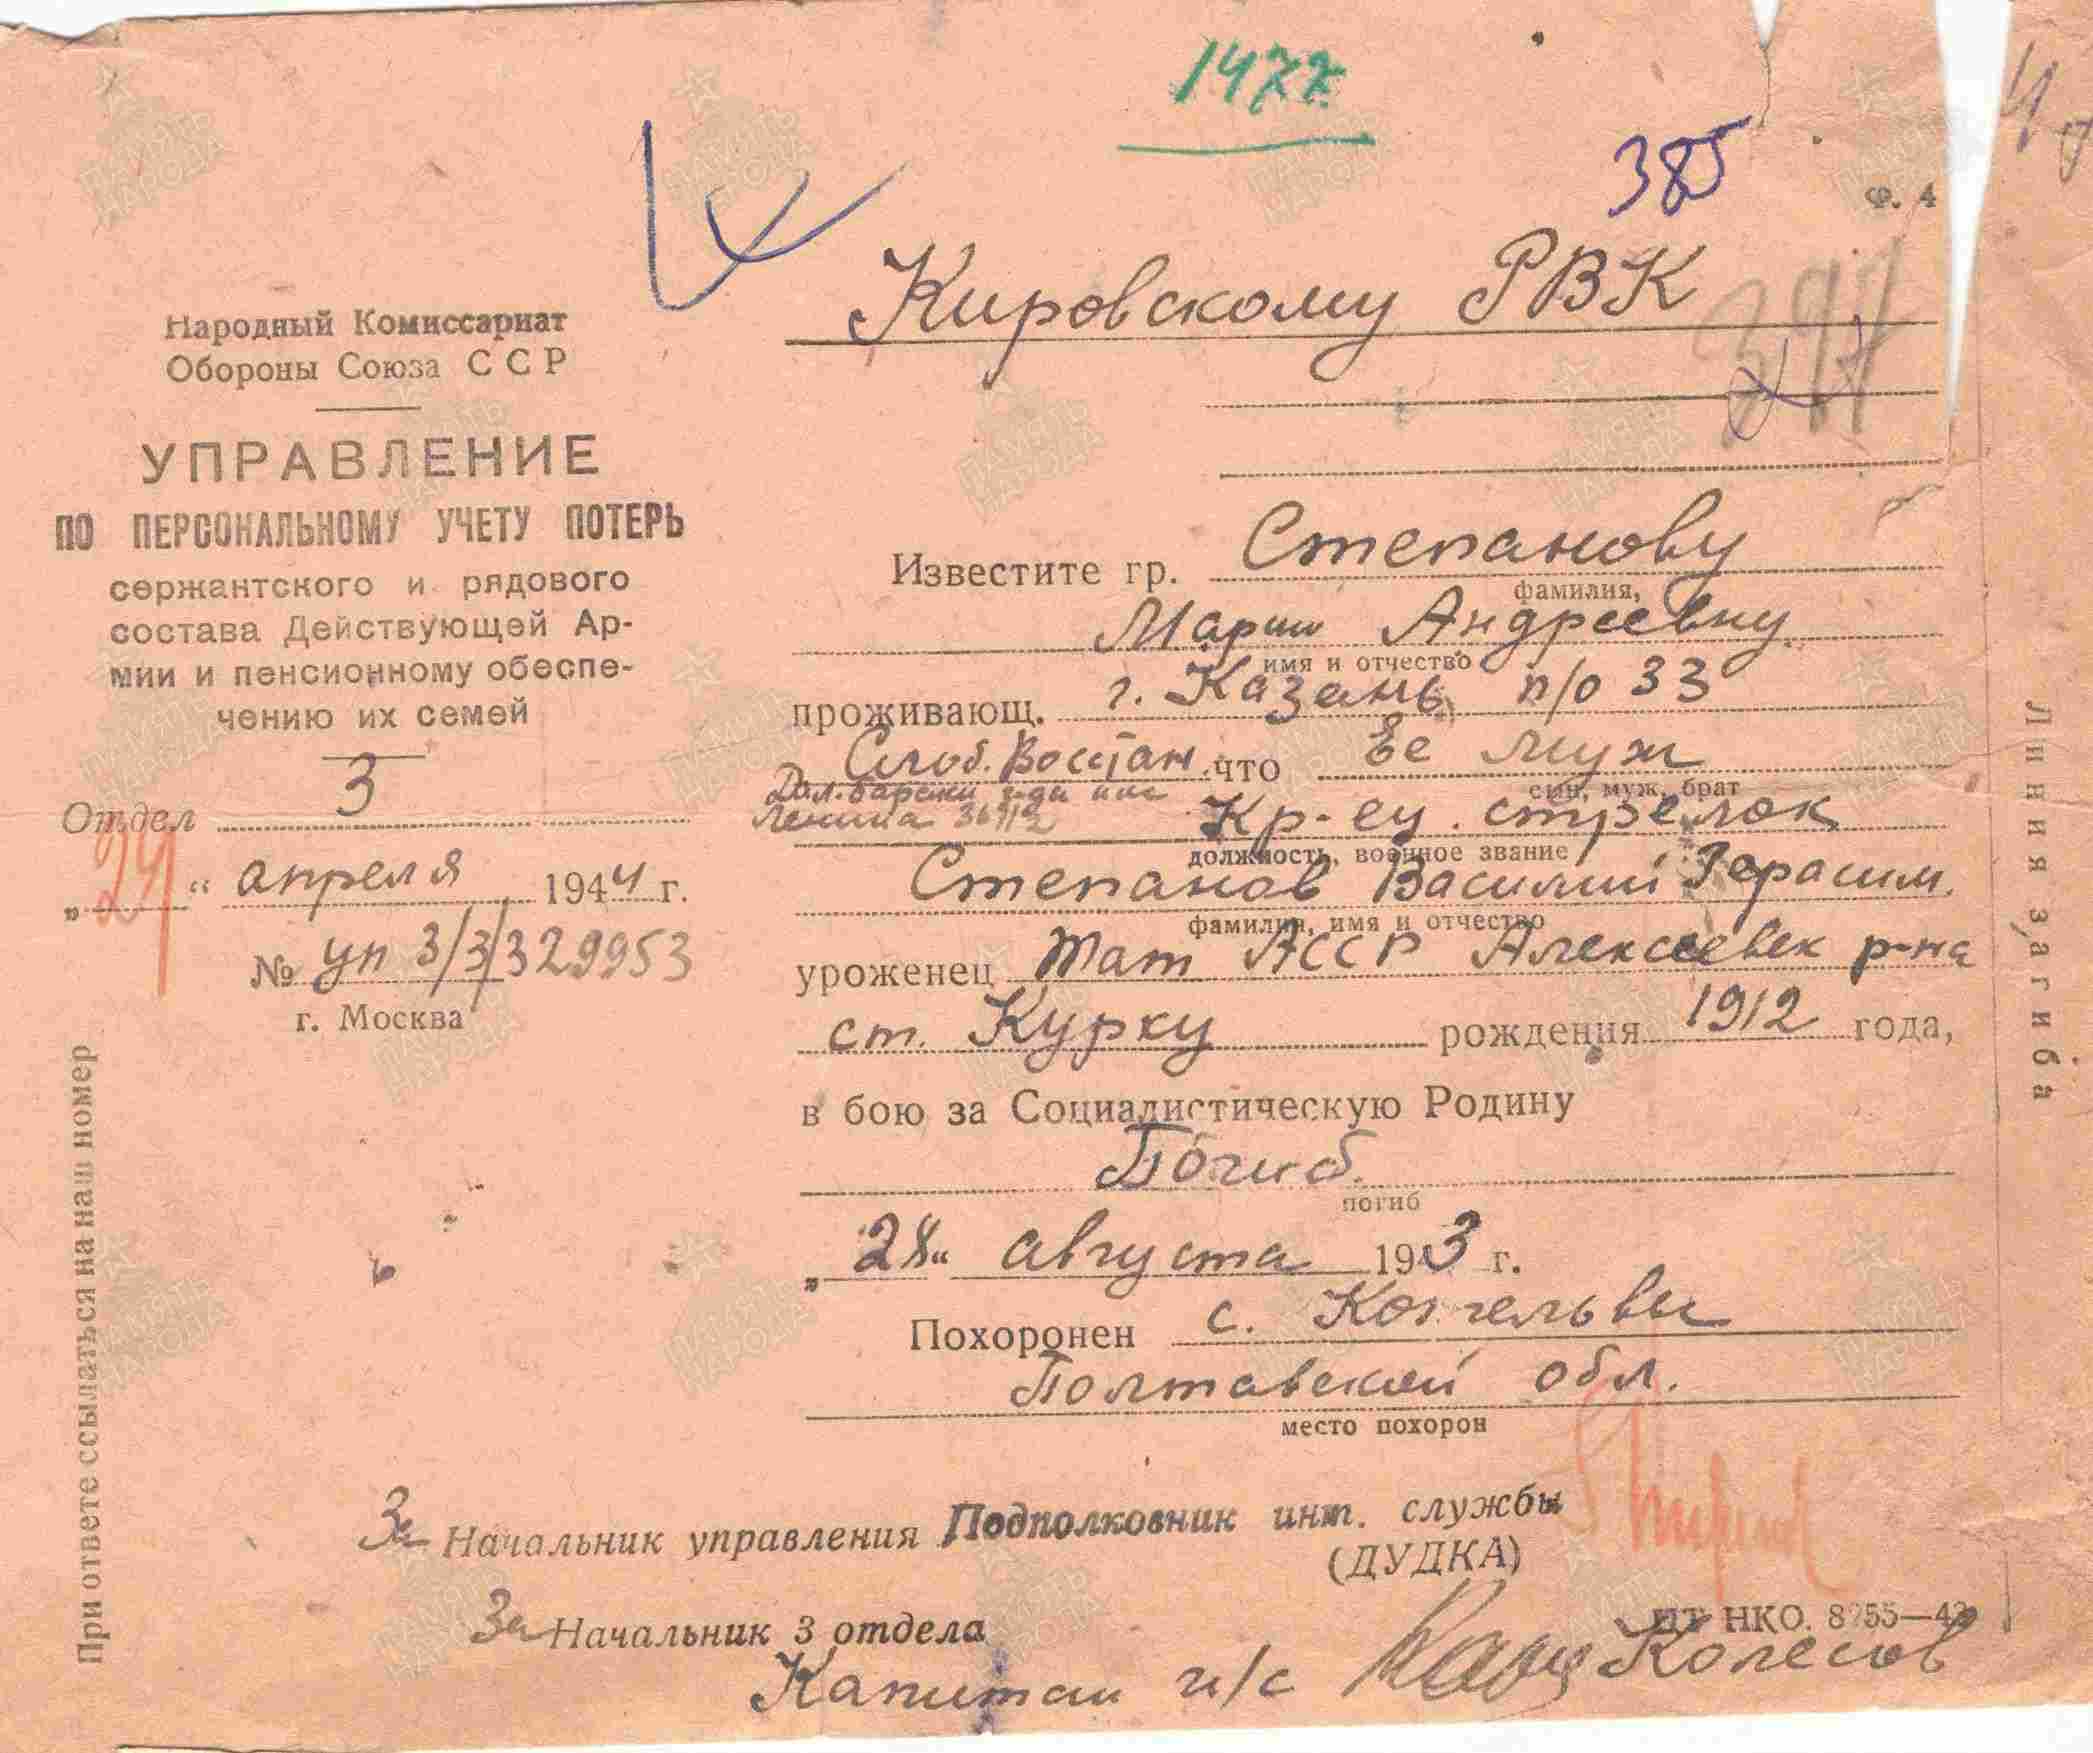 1477
385
Ф. 4
Народный Комиссариат
Обороны Союза ССР
УПРАВЛЕНИЕ
ПО ПЕРСОНАЛЬНОМУ УЧЕТУ ПОТЕРЬ
сержантского и рядового
состава Действующей Ар-
мии и пенсионному обеспе-
чению их семей
Отдел 3
„24“ апреля 1944 г.
№ уп 3/3/329953
г. Москва
При ответе ссылаться на наш номер
Кировскому РВК
397
Известите гр. Степанову
фамилия,
Марию Андреевну
имя и отчество
проживающ. г. Казань п/о 33
Слоб. Восстан. что Ее муж
сын, муж, брат
Ленина 36/12 Кр-ец. стрелок
должность, военное звание
Степанов Василий Герасим.
фамилия, имя и отчество
уроженец Тат АССР Алексеевск р-на
ст. Курку рождения 1912 года,
в бою за Социалистическую Родину
Погиб.
погиб
„28“ августа 1943 г.
Похоронен с. Котельвы
Полтавской обл.
место похорон
За Начальник управления Подполковник инт. службы
(ДУДКА)
За Начальник 3 отдела
Капитан и/с Колесов
ЦТ НКО. 8255—43
Линия загиба
ПАМЯТЬ НАРОДА